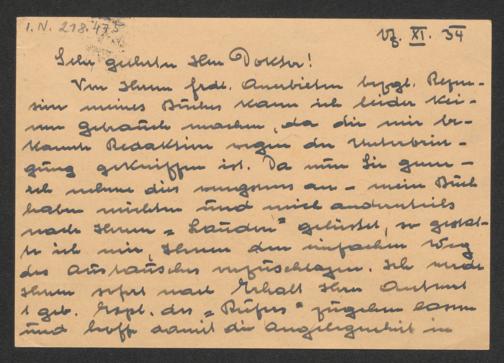 I.N. 218.473
13. XI. 34
Sehr geehrter Herr Doktor!
Von Ihrem frdl. Anerbieten bezgl. Rezen-
sion meines Buches kann ich leider kei-
nen Gebrauch machen, da die mir be-
kannte Redaktion wegen der Unterbrin-
gung gekniffen ist. Da nun Sie
ich nehme dies wenigstens an – mein Buch
haben möchten und mich andernteils
nach Ihrem „Lauda" gelüstet, so gestat-
te ich mir, Ihnen den einfachen Weg
des Austausches vorzuschlagen. Ich werde
Ihnen sofort nach Erhalt Ihrer Antwort
1 geb. Expl. des „Rufes" zugehen lassen
und hoffe damit die Angelegenheit in